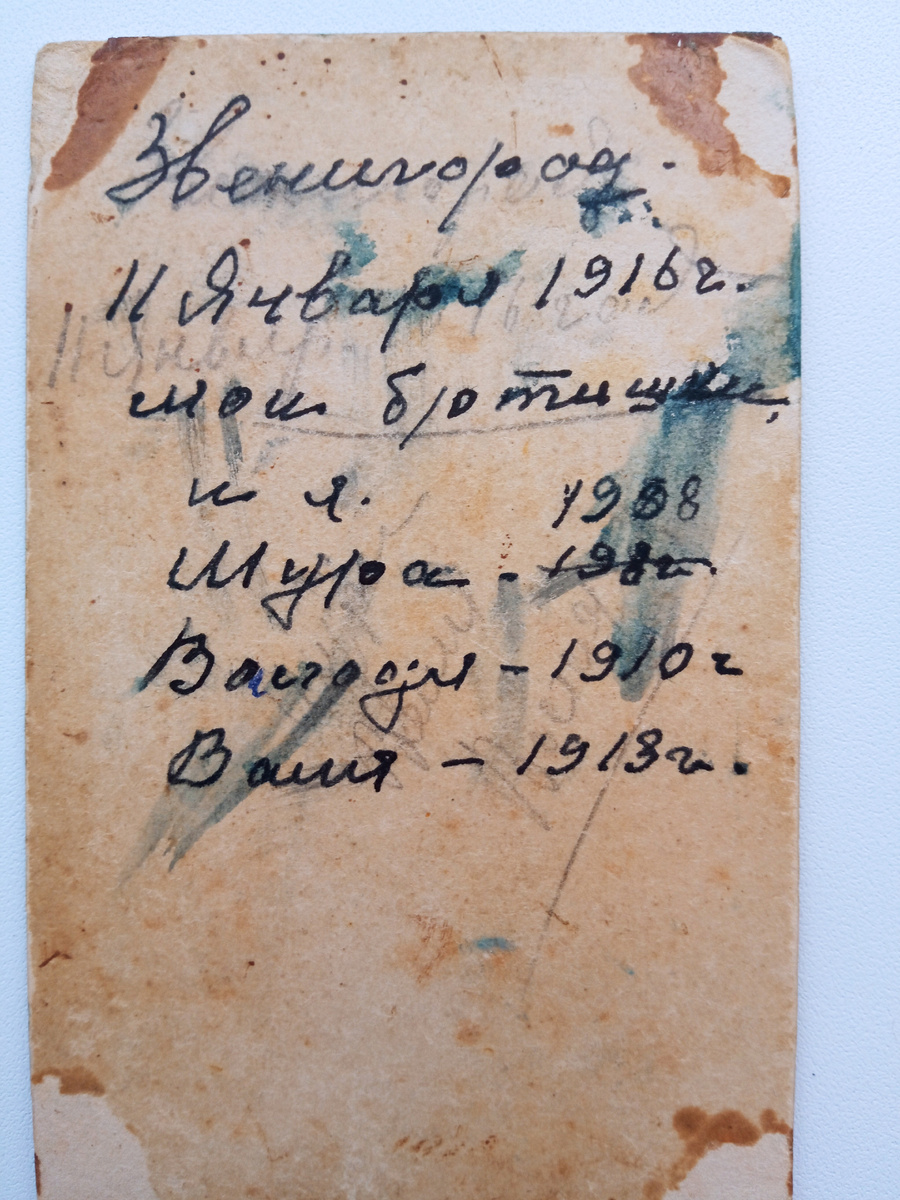 Звенигород.
11 Января 1916 г.
мои братишки
и я. 1908
Шура -
Володя - 1910 г
Ваня - 1913 г.